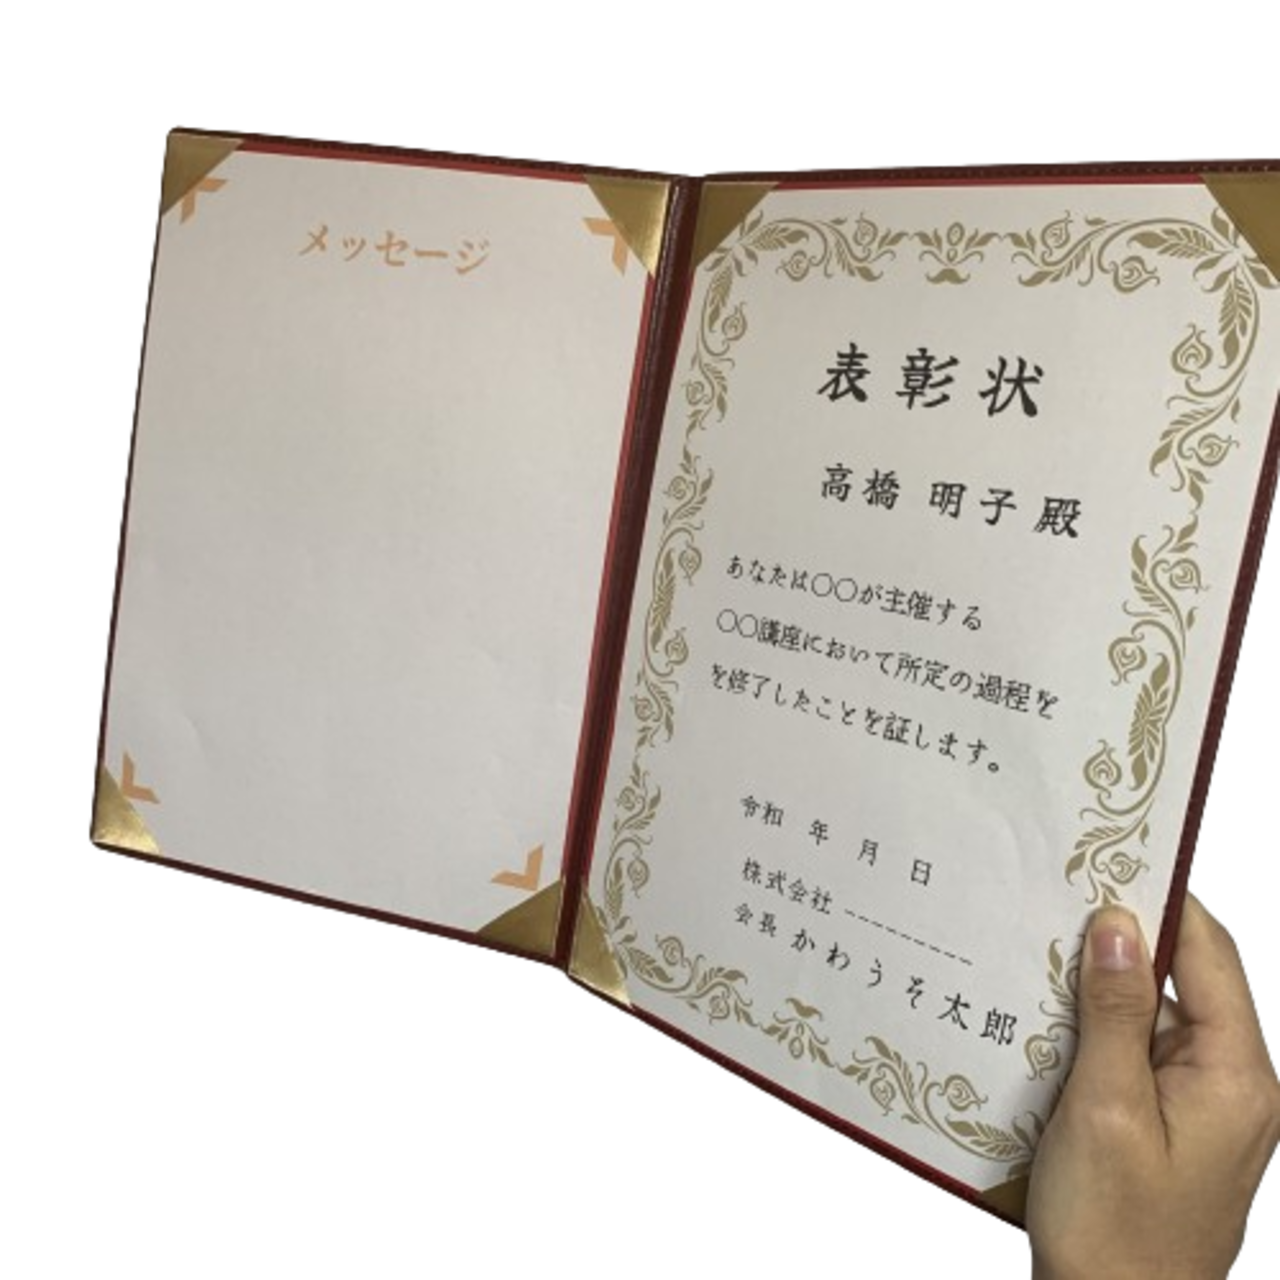 メッセージ
表彰状
高橋 明子 殿
あなたは〇〇が主催する
〇〇講座において所定の過程を
を修了したことを証します。
令和 年 月 日
株式会社 ---------
会長 かわうそ太郎